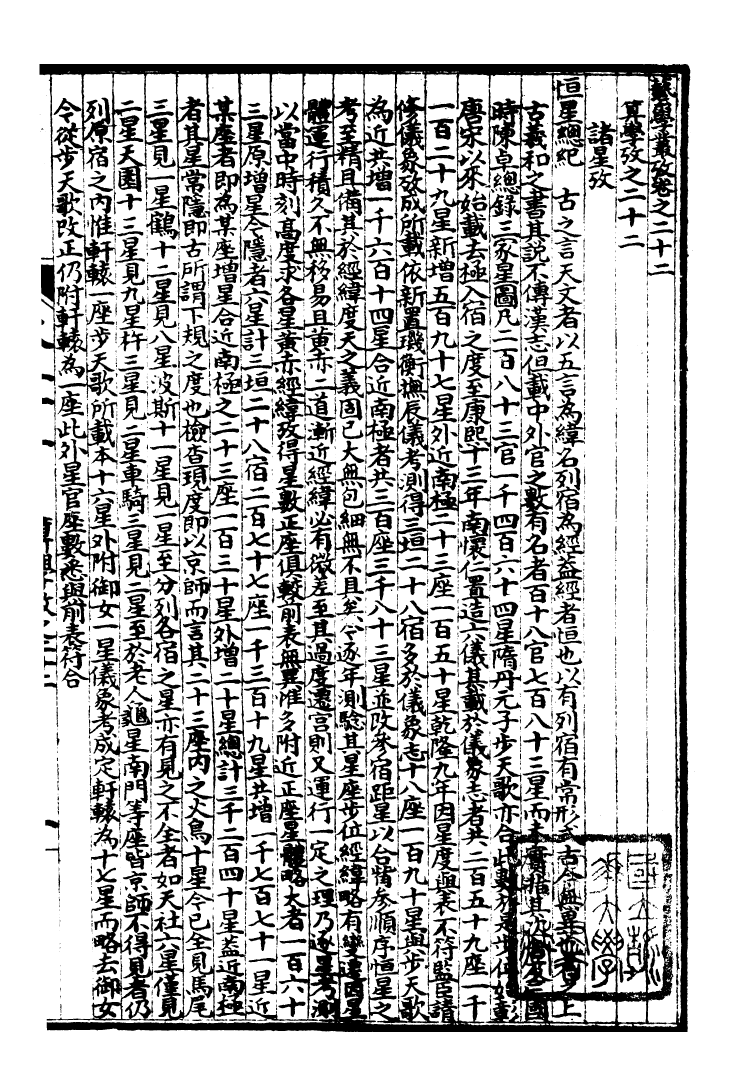 藝學叢攷卷之二十二
算學攷之二十二
諸星攷
恒星總紀 古之言天文者以五言為緯名列宿為經葢經者恒也以有列宿有常形 古今無異也 上
古義和之書其説不傳漢志但載中外官之數有名者百十八官七百八十三星而未 指其 國
時陳卓總錄三家星圖凡二百八十三官一千四百六十四星隋丹元子步天歌亦合此數於是步位 彰
唐宋以來始載去極入宿之度至康熙十三年南懷仁置造六儀其載於儀象志者共二百五十九座一千
一百二十九星新增五百九十七星外近南極二十三座一百五十星乾隆九年因星度與表不符監臣請
修儀象攷成所載依新置璣衡撫辰儀考測得三垣二十八宿多於儀象志十八座一百九十星與步天歌
為近共增一千六百十四星合近南極者共三百座三千八十三星並改參宿距星以合觜參順序恒星之
考至精且備其於經緯度天之義固已大無包細無不具矣今逐年測驗其星座步位經緯略有變遷因星
體運行積久不無移易且黄赤二道漸近經緯必有微差至其過度遷宫則又運行一定之理乃逐星考測
以當中時刻髙度求各星黄赤經緯攷得星數正座俱較前表無異惟多附近正座星體略大者一百六十
三星原增星今隱者六星計三垣二十八宿二百七十七座一千三百十九星共增一千七百七十一星近
某座者即為某座增星合近南極之二十三座一百三十星外增二十星總計三千二百四十星葢近南極
者其星常隱即古所謂下規之度也檢查現度即以京師而言其二十三座内之火鳥十星今已全見馬尾
三星見一星鶴十二星見八星波斯十一星見一星至分列各宿之星亦有見之不全者如天社六星僅見
二星天園十三星見九星杵三星見二星車騎三星見二星至於老人龜星南門等座皆京師不得見者仍
列原宿之内惟軒轅一座步天歌所載本十六星外附御女一星儀象考成定軒轅為十七星而略去御女
令從步天歌改正仍附軒轅為一座此外星官座數悉與前表符合